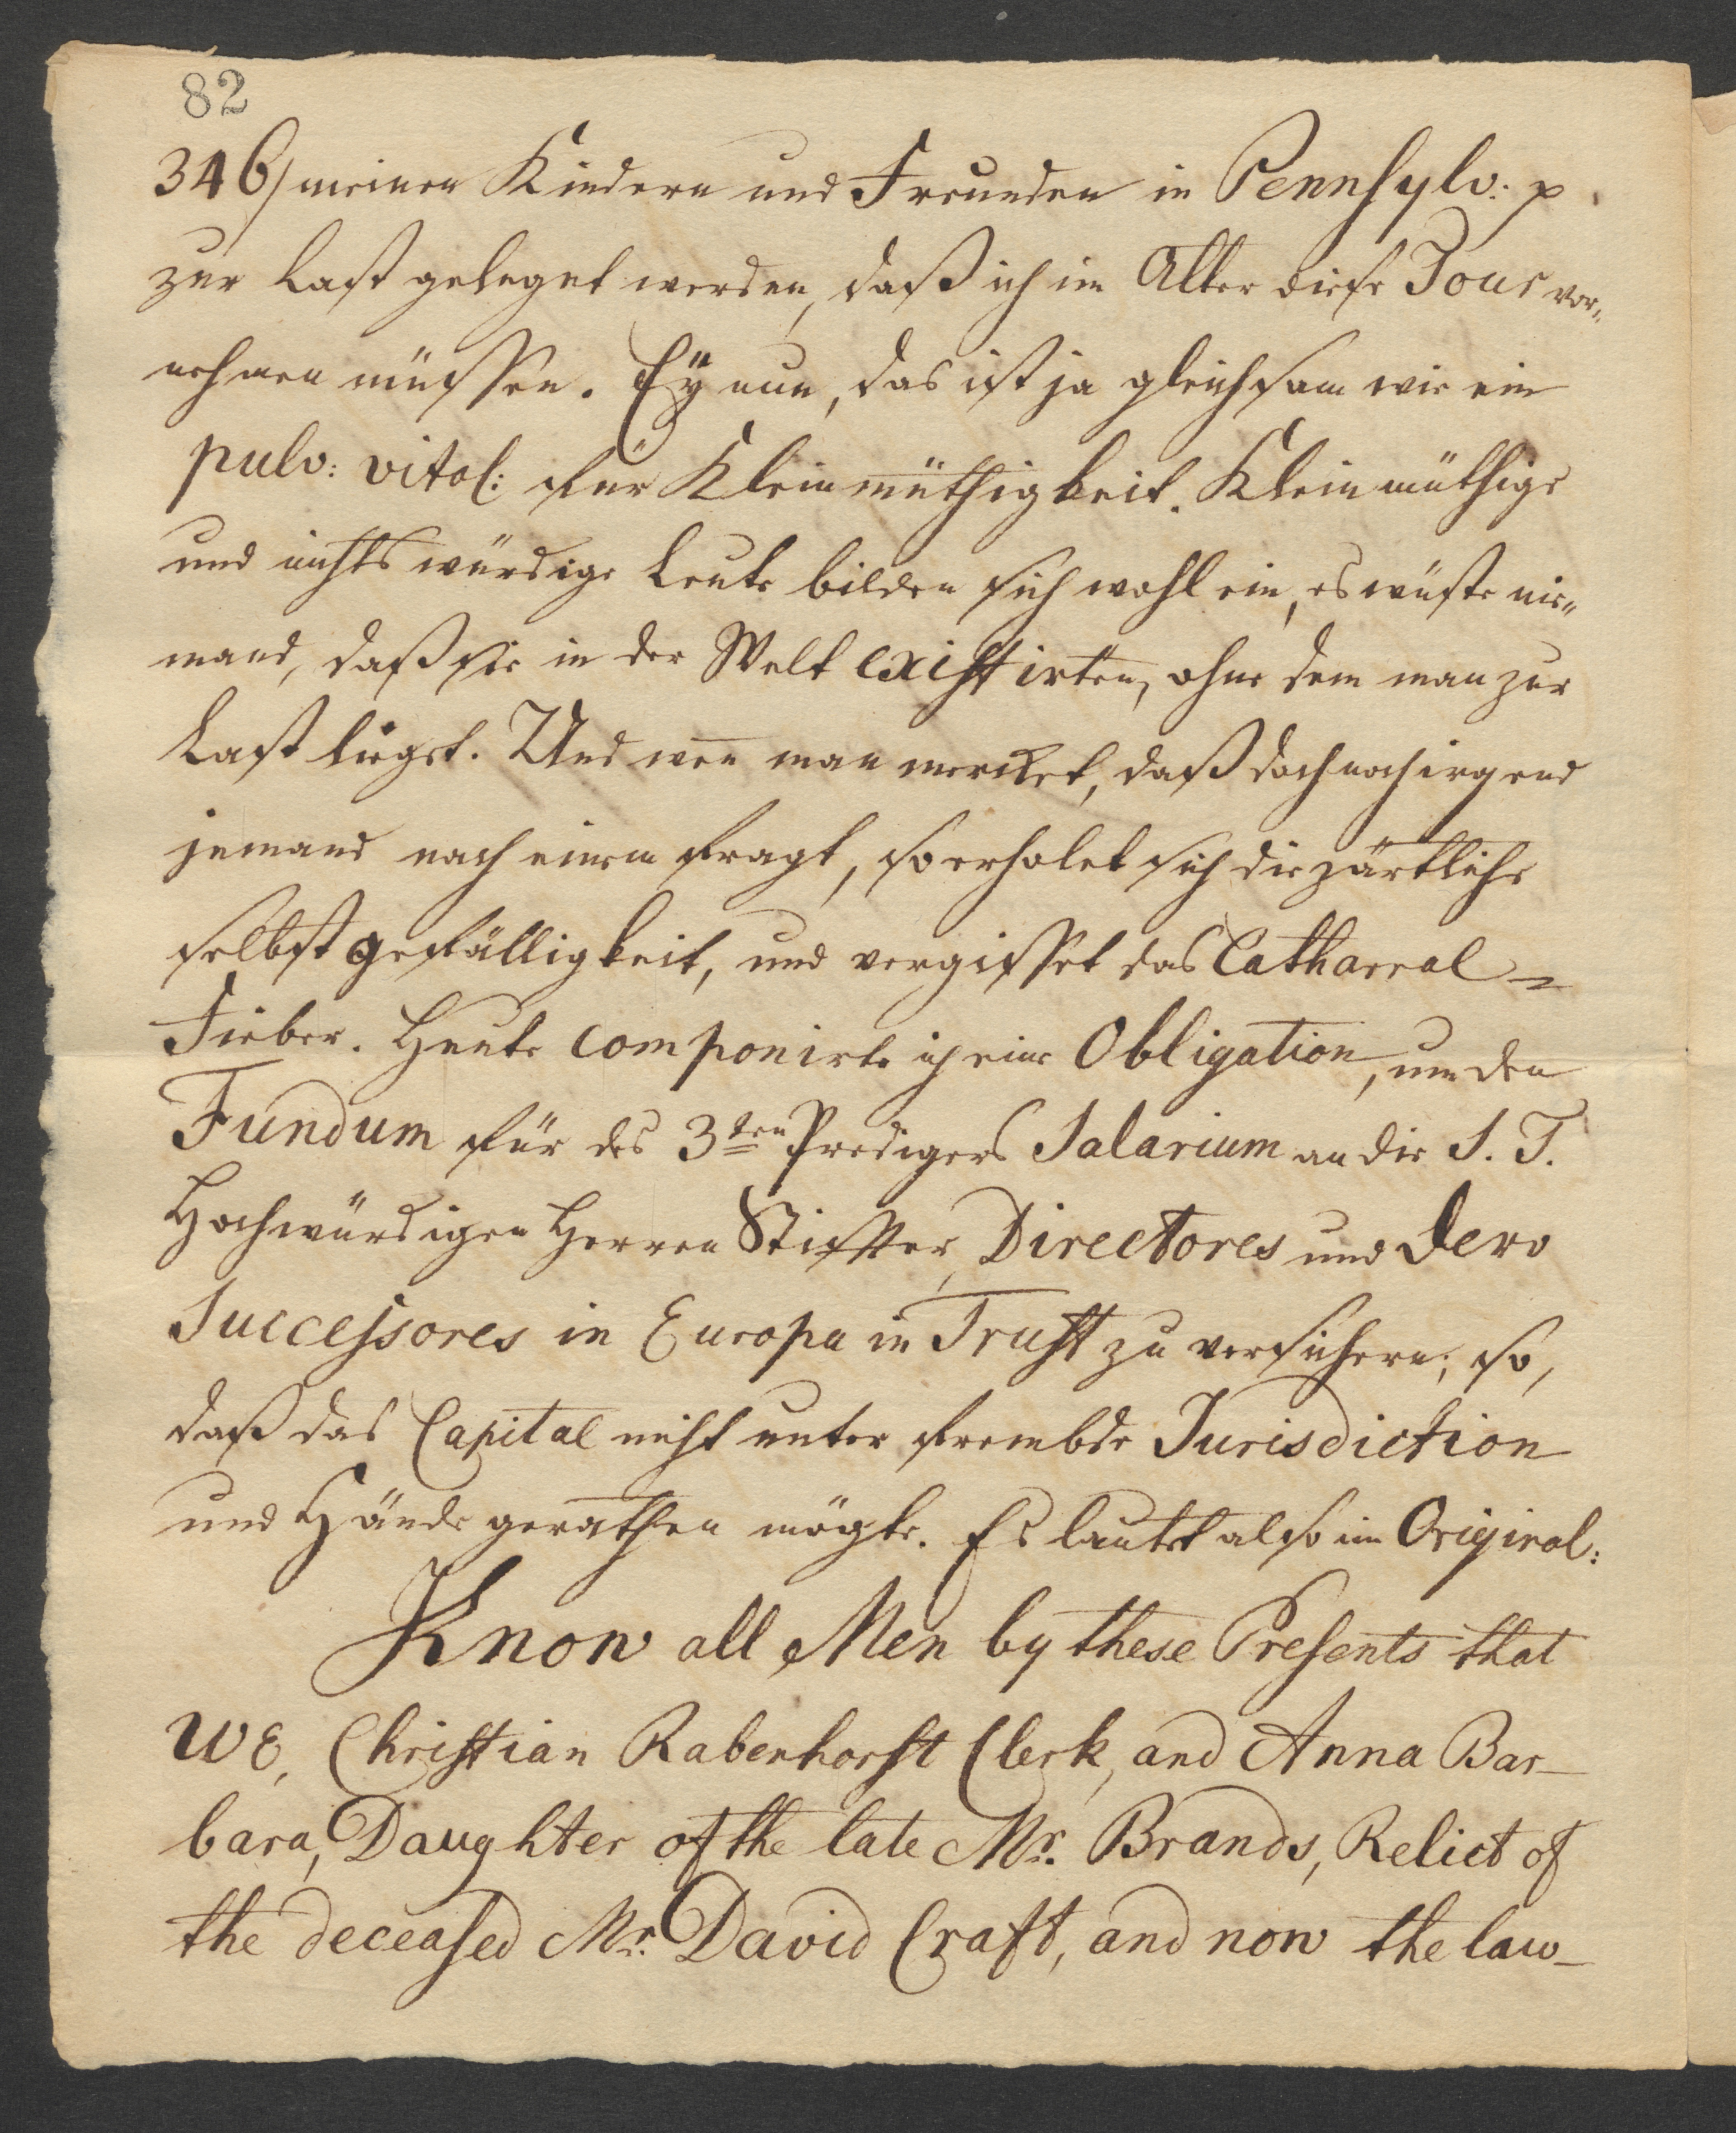 82
346/ meinen Kindern und Freunden in Pennsylv: p
zur Last geleget werden, daß ich im Alter diese Tour vor„
nehmen müssen. Ey nun, das ist ja gleichsam wie ein
pulv: vital: für Kleinmüthigkeit. Kleinmüthige
und nichtswürdige Leute bilden sich wohl ein, es wüste nie„
mand, daß sie in der Welt existirten, ohne dem man zur
Last liegst. Und wen̅ man mercket, daß doch noch irgend
jemand nach einem fragt, so erholet sich die zärtliche
selbst gefälligkeit, und vergisset das Catharral=
Fieber. Heute componirte ich eine Obligation, um den
Fundum für des 3ten Predigers Salarium an die S. T.
Hochwürdigen Herren Stiffter, Directores und dero
Successores in Europa in Trust zu versichern; so,
daß das Capital nicht unter frembde Jurisdiction
und Hände gerathen mögte. Es lautet also im Original:
Know all Men by these Presents that
We, Christian Rabenhorst Clerk, and Anna Bar-
bara, Daughter of the late Mr. Brands, Relict of
the deceased Mr. David Craft, and now the law-